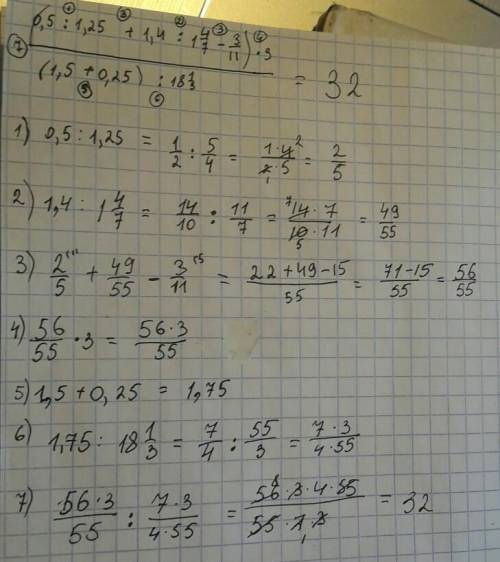 (0,5 : 1,25 + 1,4 : 1 4/7 − 3/11) · 3
① ③ ② ③ ④
⑦
(1,5 + 0,25) : 18 1/3 = 32
⑤ ⑥
1) 0,5 : 1,25 = 1/2 : 5/4 = 1·4²/2₁·5 = 2/5
2) 1,4 : 1 4/7 = 14/10 : 11/7 = ⁷14·7/10₅·11 = 49/55
3) 2/5 ⁽¹¹ + 49/55 − 3/11 ⁽⁵ = 22+49−15/55 = 71−15/55 = 56/55
4) 56/55 · 3 = 56·3/55
5) 1,5 + 0,25 = 1,75
6) 1,75 : 18 1/3 = 7/4 : 55/3 = 7·3/4·55
7) 56·3/55 : 7·3/4·55 = 56⁸·3·4·55/55·7₁·3 = 32